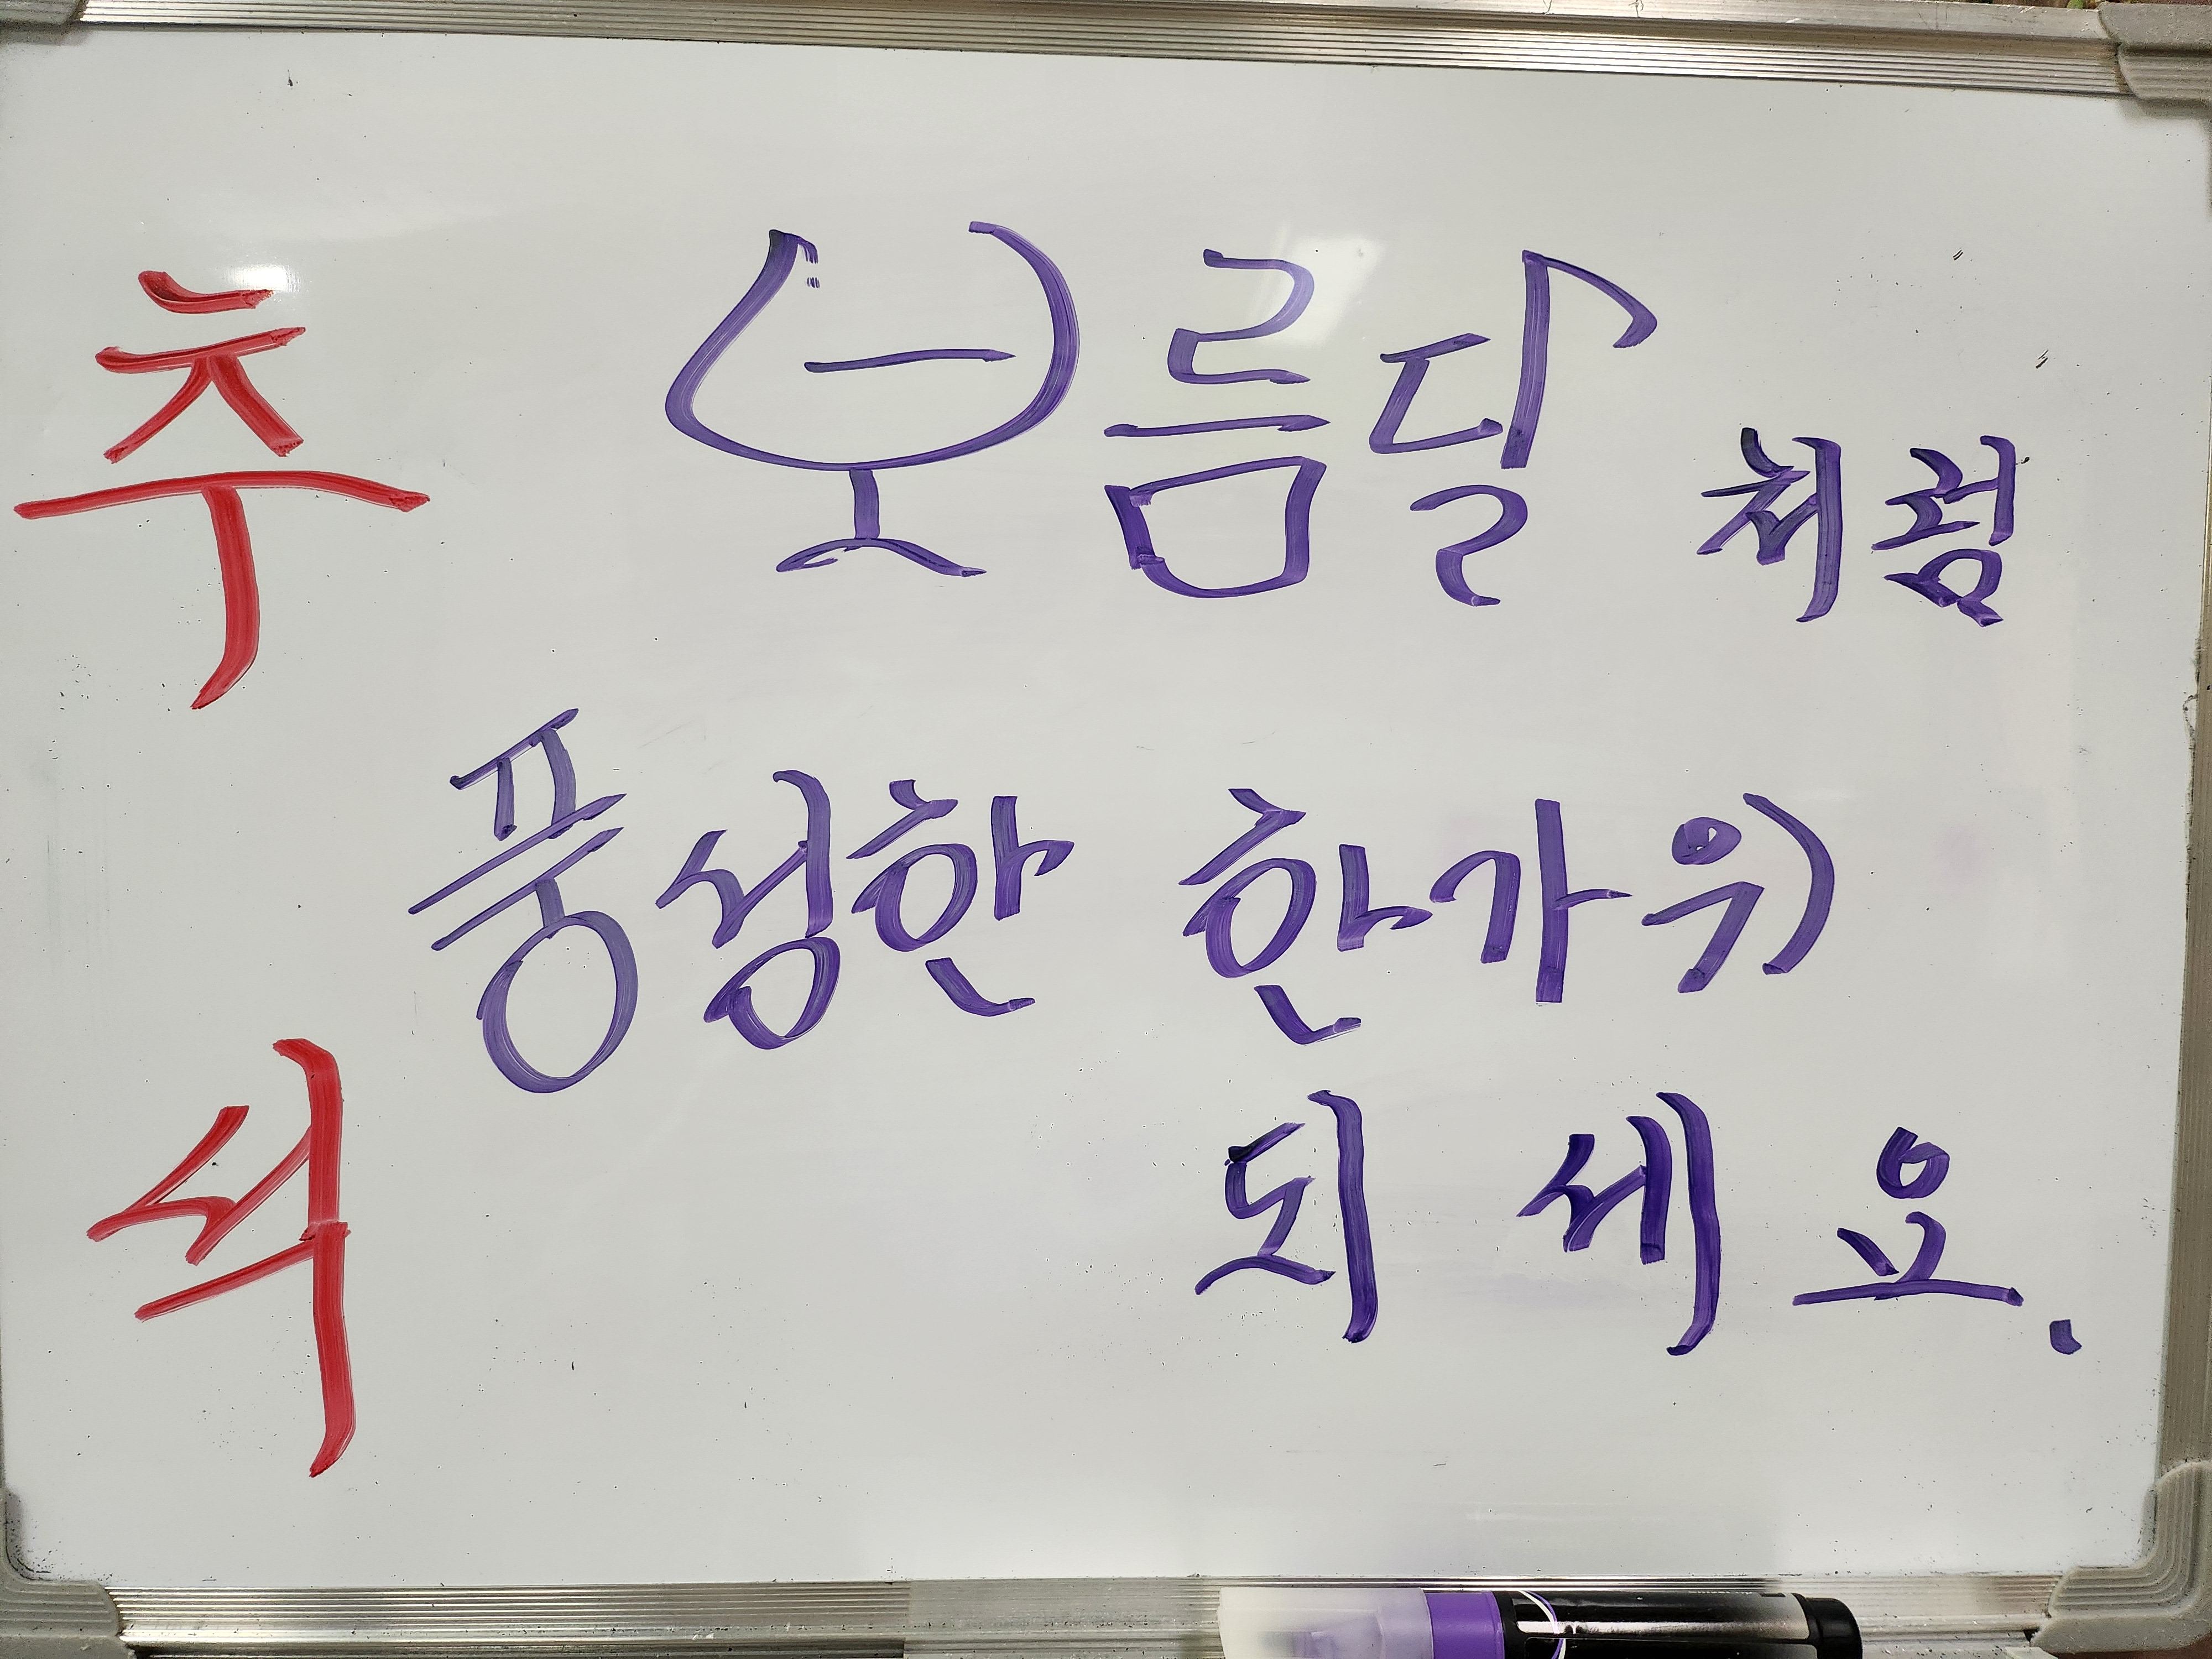 추석
보름달처럼
풍성한 한가위
되세요.